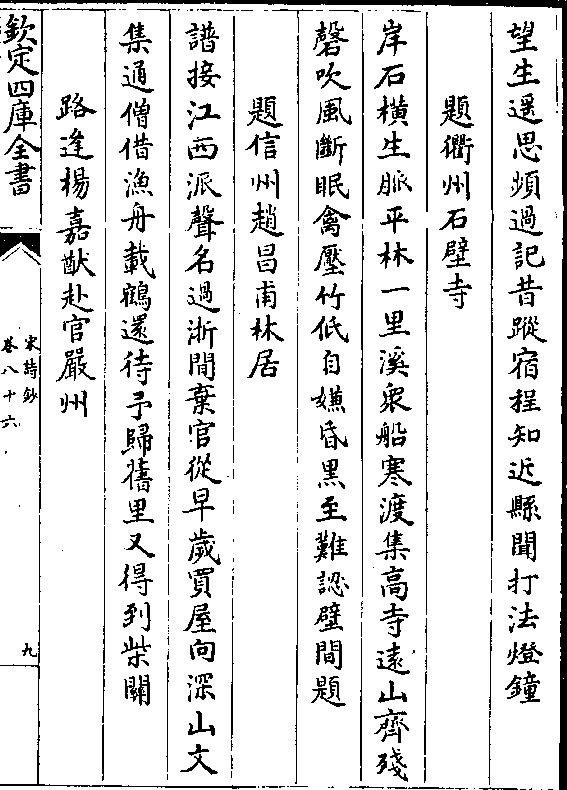 望生遥思頻過記昔蹤宿程知近縣聞打法燈鐘
題衢州石壁寺
岸石橫生脈平林一里溪衆船寒渡集高寺遠山齊殘
磬吹風斷眠禽壓竹低自嫌昏黑至難認壁間題
題信州趙昌甫林居
譜接江西派聲名過浙間棄官從早歲買屋向深山文
集通僧借漁舟載鶴還待予歸舊里又得到柴關
路逢楊嘉猷赴官嚴州
欽定四庫全書
宋詩鈔
卷八十六
九